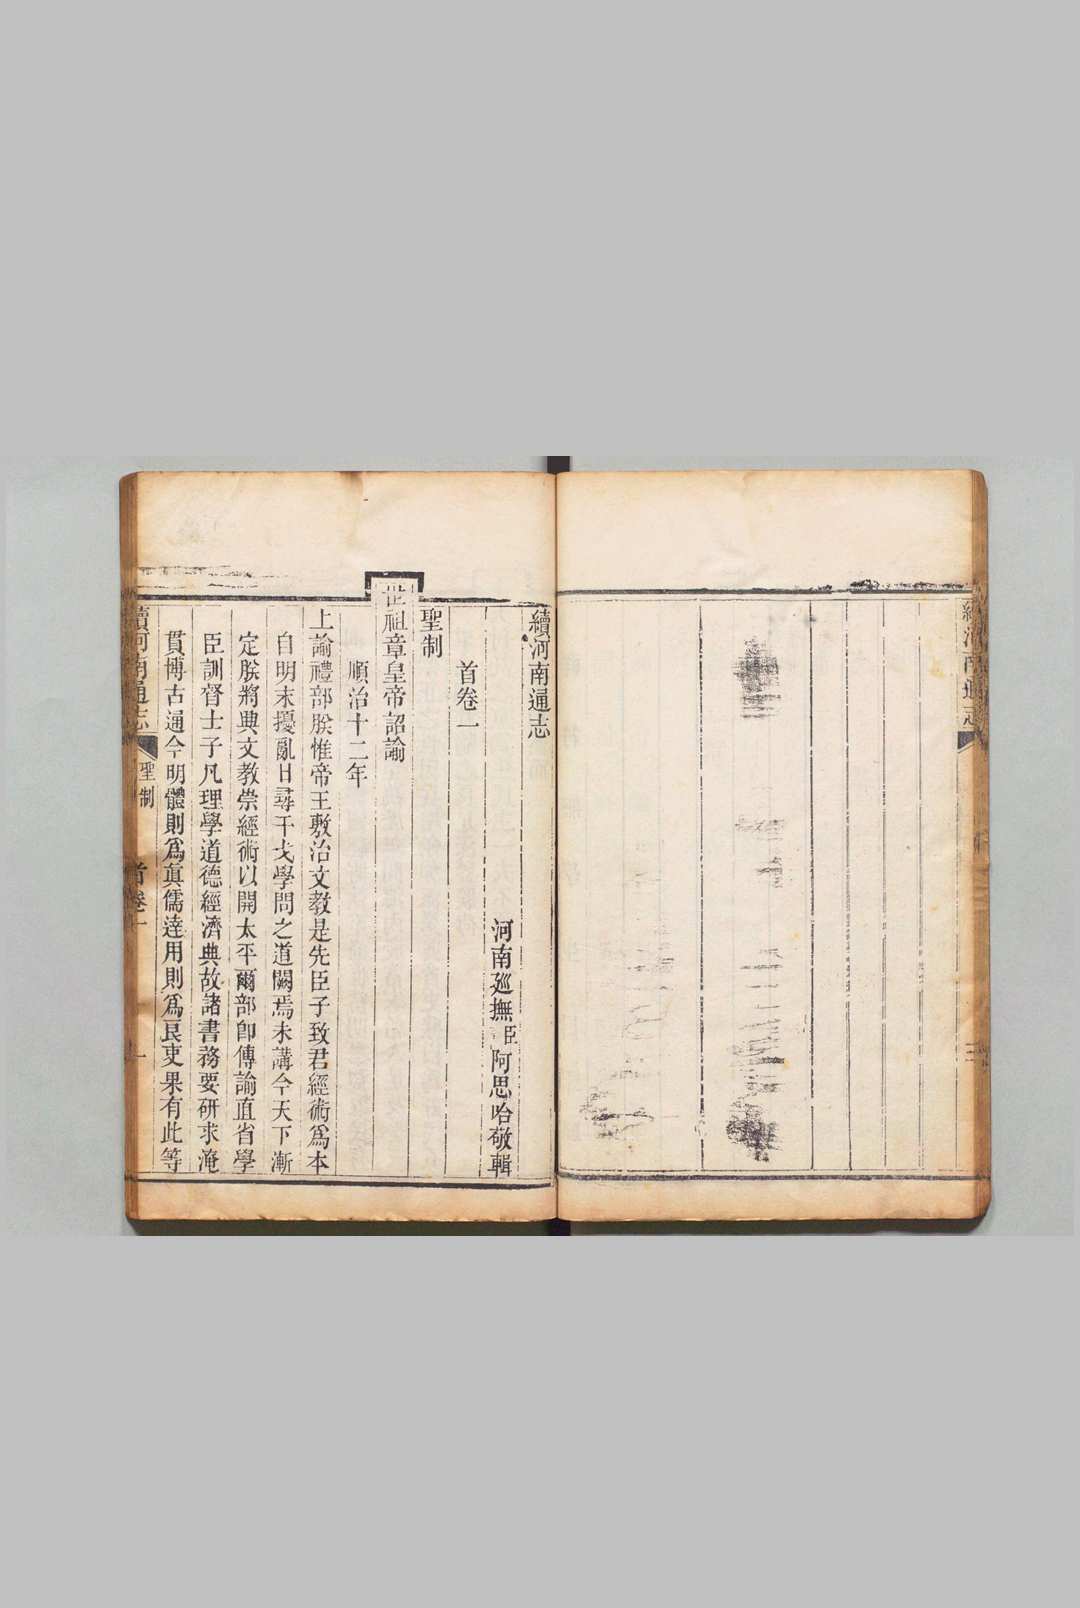 續河南通志
續河南通志
河南廵撫臣阿思哈敬輯
首卷一
聖制
世祖章皇帝詔諭
順治十二年
上諭禮部朕惟帝王敷治文教是先臣子致君經術爲本
自明末擾亂日尋干戈學問之道闕焉未講今天下漸
定朕將典文教崇經術以開太平爾部卽傳諭直省學
臣訓督士子凡理學道德經濟典故諸書務要研求淹
貫博古通今明體則爲眞儒達用則爲良吏果有此等
續河南通志 聖制 首卷一 一